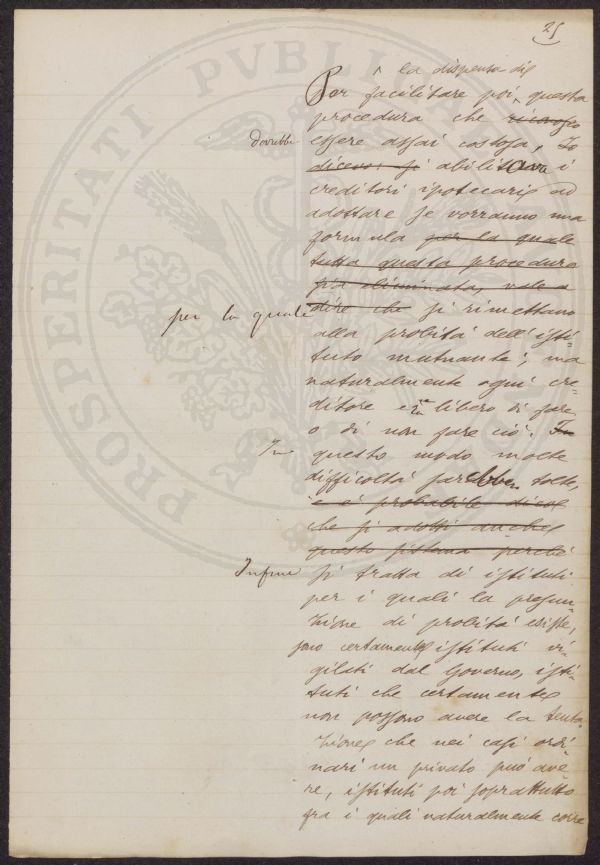 25
la dispensa di
Per facilitare poi questa
procedura che
dovrebbe essere assai costosa, Io
dicevo: si abilitava i
creditori ipotecari ad
adottare se vorranno una
formula per la quale
tutta questa procedura
sia eliminata, vale a
per la quale dire che si rimettano
alla probità dell'isti-
tuto mutuante; ma
naturalmente ogni cre-
ditore è libero di fare
o di non fare ciò. In
In questo modo molte
difficoltà sarebbero tolte,
e è probabile dico
che si adotti anche
questo sistema perché
Infine si tratta di istituti
per i quali la presun-
zione di probità esiste,
sono certamente istituti vi-
gilati dal Governo, isti-
tuti che certamente
non possono avere la tenta-
zione che nei casi ordi-
nari un privato può ave-
re, istituti poi soprattutto
fra i quali naturalmente corre
PROSPERITATI PVBLICAE
PROTO